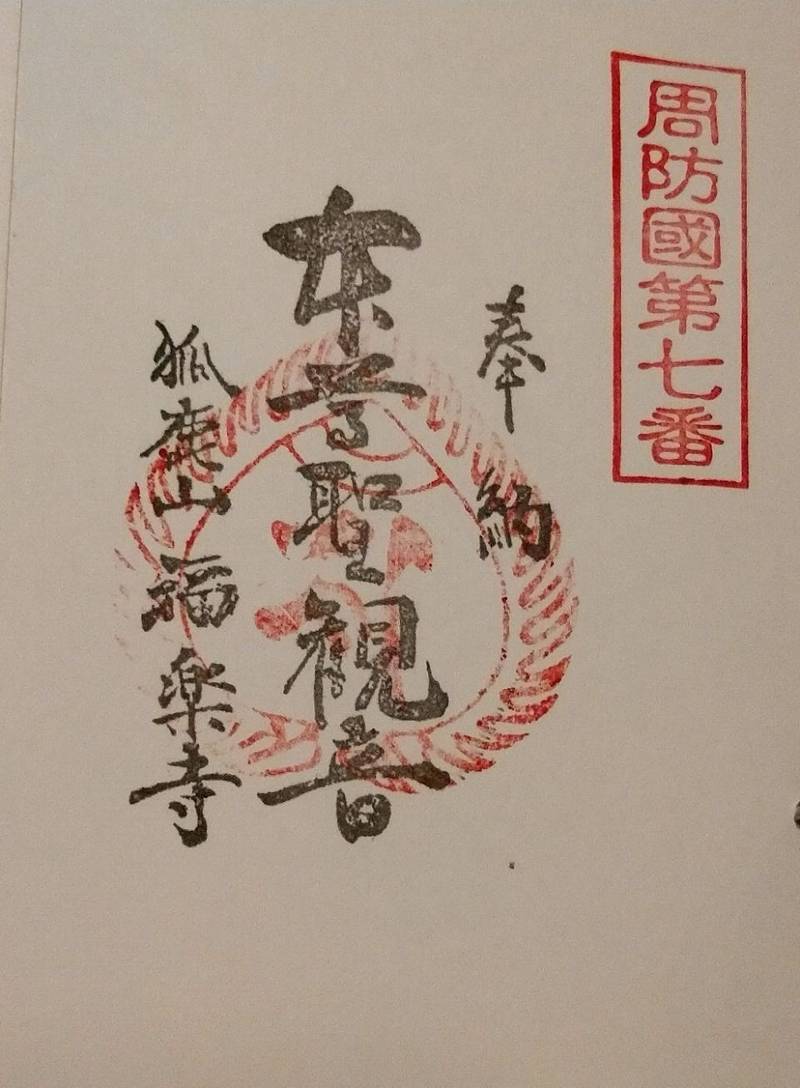 周防國第七番
奉納
本尊聖観音
狐鹿山 福楽寺